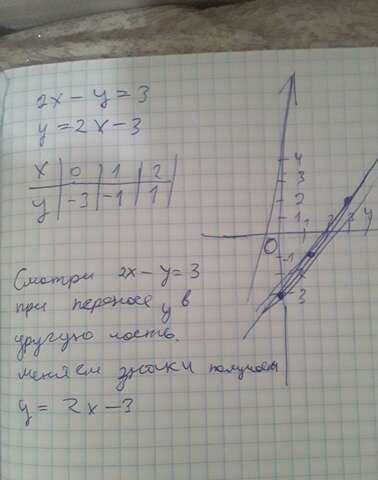 2x - y = 3
y = 2x - 3
x | 0 | 1 | 2
y | -3 | -1 | 1
4
3
2
1
0 1 2 3 y
-1
2
3
Смотри 2x - y = 3
при переносе y в
другую часть.
меняем знаки получаем
y = 2x - 3